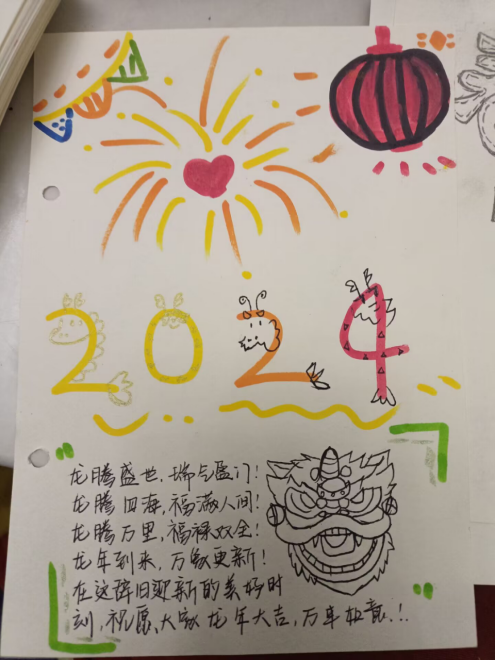 2024
龙腾盛世，瑞气盈门！
龙腾四海，福满人间！
龙腾万里，福禄双全！
龙年到来，万象更新！
在这辞旧迎新的美好时
刻，祝愿大家龙年大吉，万事如意.！